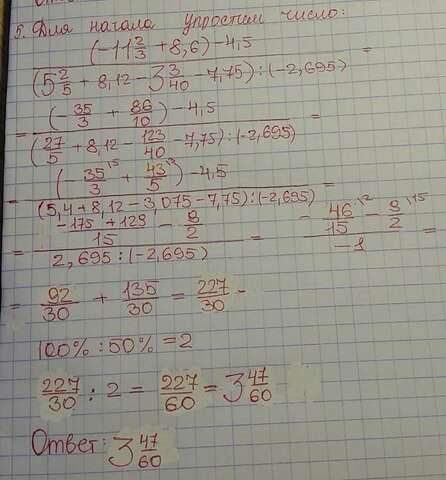 5. Для начала упростим число:
(-11 2/3 + 8,6) - 4,5
(5 2/5 + 8,12 - 3 3/40 - 7,75) : (-2,695) =
= (-35/3 + 86/10) - 4,5
(27/5 + 8,12 - 123/40 - 7,75) : (-2,695) =
(-35/3 \5 + 43/5 \3) - 4,5
(5,4 + 8,12 - 3,075 - 7,75) : (-2,695) =
= (-175 + 129)/15 - 9/2
2,695 : (-2,695) = (-46/15 \2 - 9/2 \15)/-1
= 92/30 + 135/30 = 227/30 -
100% : 50% = 2
227/30 : 2 = 227/60 = 3 47/60
Ответ: 3 47/60